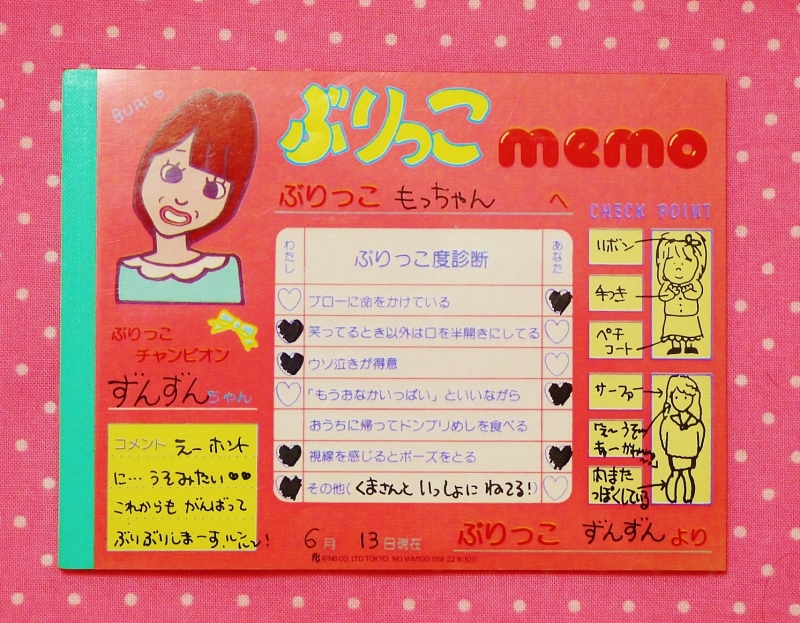 BURI♡
ぶりっこ memo
ぶりっこ もっちゃん へ
CHECK POINT
わたし
ぶりっこ度診断
あなた
ブローに命をかけている
笑ってるとき以外は口を半開きにしてる
ウソ泣きが得意
「もうおなかいっぱい」といいながら
おうちに帰ってドンブリめしを食べる
視線を感じるとポーズをとる
その他(くまさんと いっしょに ねてる!)
リボン
手つき
ペチ
コート
サーファ
内また
っぽくしている
ぶりっこ
チャンピオン
ずんずんちゃん
コメント えー ホント
に… うそみたい♥♥
これからも がんばって
ぶりぶりしまーす。ルンルン!
6月 13日現在
ぶりっこ ずんずん より
©NB CO., LTD. TOKYO NO.WM100-058